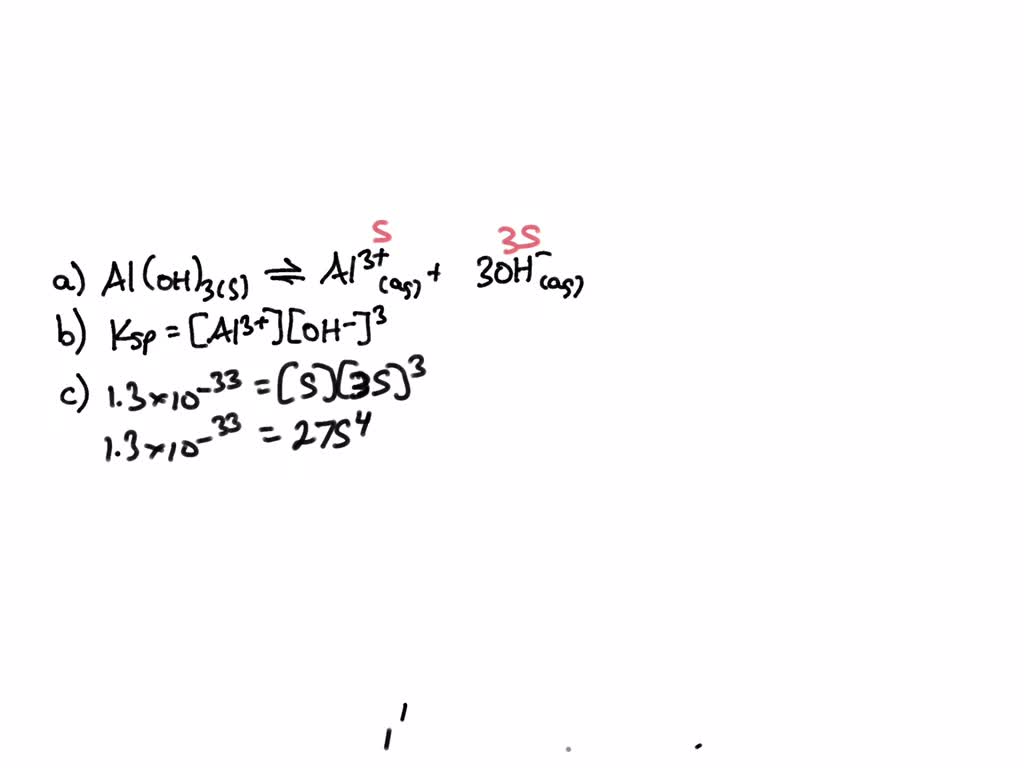 S 3S
a) Al(OH)3(s) ⇌ Al3+(aq) + 3OH-(aq)
b) Ksp = [Al3+][OH-]3
c) 1.3×10-33 = [S][3S]3
1.3×10-33 = 27S4